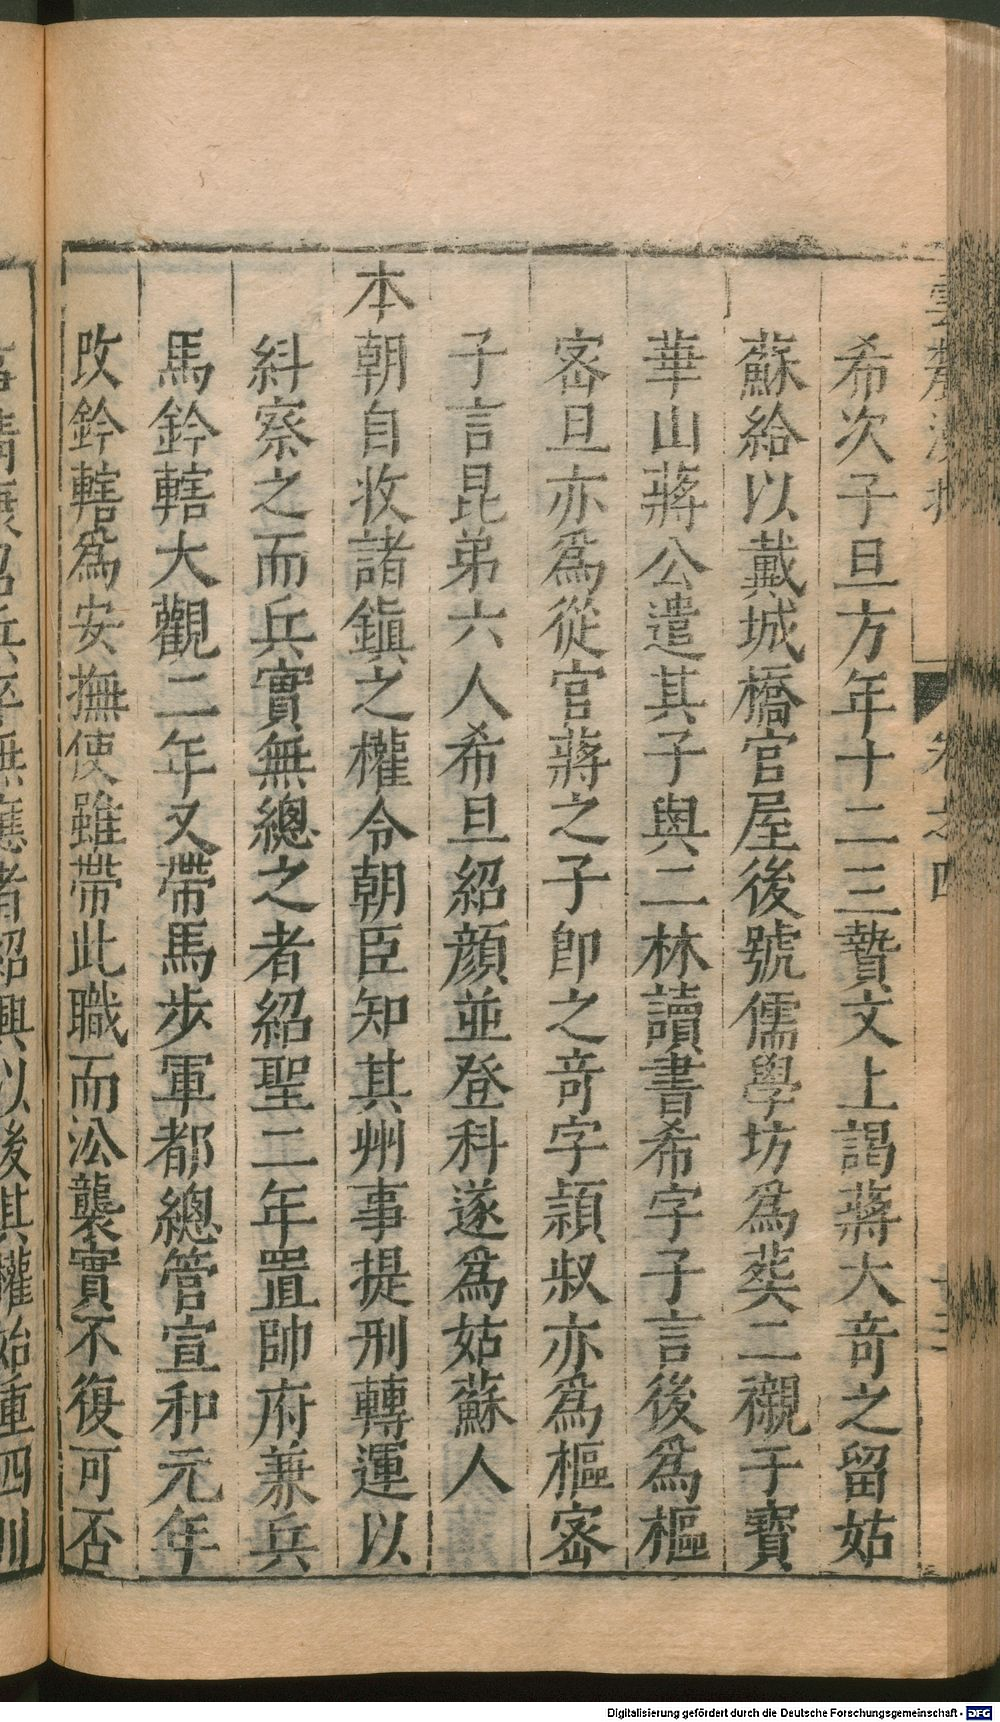 希次子旦方年十二三贄文上謁蔣大竒之留姑
蘇給以戴城橋官屋後號儒學坊爲葬二襯于寳
華山蔣公遣其子與二林讀書希字子言後爲樞
宻旦亦爲從官蔣之子卽之竒字頴叔亦爲樞宻
子言昆弟六人希旦紹顔並登科遂爲姑蘇人
本朝自收諸鎭之權令朝臣知其州事提刑轉運以
糾察之而兵實無總之者紹聖二年置帥府兼兵
馬鈐轄大觀二年又帶馬步軍都總管宣和元年
改鈐轄爲安撫使雖帶此職而㳂襲實不復可否
卷之四
Digitalisierung gefördert durch die Deutsche Forschungsgemeinschaft - DFG